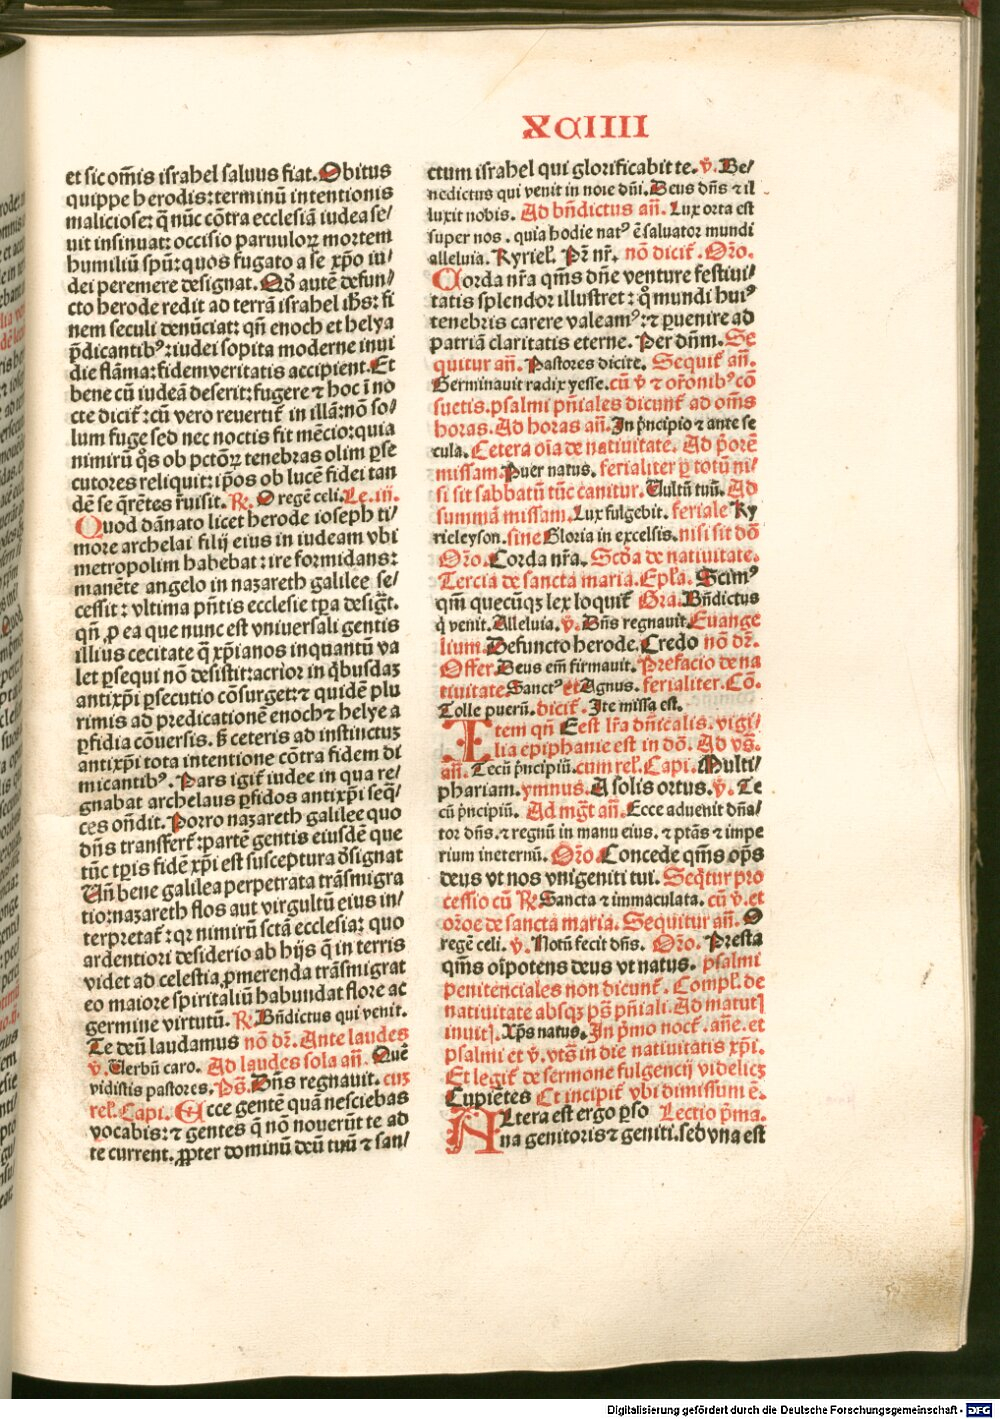 XCIIII
et sic om̄is israhel saluus fiat. Obitus
quippe herodis: terminū intentionis
maliciose: q̄ nūc cōtra ecclesiā iudea se/
uit insinuat: occisio paruuloꝝ mortem
humiliū spūs: quos fugato a se xp̄o iu/
dei peremere designat. Qd̛ autē defun/
cto herode redit ad terrā israhel ihs̄: fi
nem seculi denūciat: qn̄ enoch et helya
p̄dicantibꝰ: iudei sopita moderne inui
die flāma: fidem veritatis accipient. Et
bene cū iudeā deserit: fugere ⁊ hoc ī no
cte dicit̄: cū vero reuertit̄ in illā: nō so/
lum fuge sed nec noctis fit mēcio: quia
nimirū q̊s ob pctōꝝ tenebras olim ꝑse
cutores reliquit: ip̄os ob lucē fidei tan
dē se q̄rētes r̄uisit. R̛. O regē celi. Le. iij.
Quod dānato licet herode ioseph ti/
more archelai filij eius in iudeam vbi
metropolim habebat: ire formidans:
manēte angelo in nazareth galilee se/
cessit: vltima p̄ntis ecclesie tꝑa desiḡt.
qn̄ ꝓ ea que nunc est vniuersali gentis
illius cecitate q̄ xp̄ianos inquantū va
let ꝑsequi nō desistit: acrior in q̇busdaꝫ
antixp̄i ꝑsecutio cōsurget: ⁊ quidē plu
rimis ad predicationē enoch ⁊ helye a
ꝑfidia cōuersis. s̄ ceteris ad instinctuꝫ
antixp̄i tota intentione cōtra fidem di
micantibꝰ. Pars igit̄ iudee in qua re/
gnabat archelaus ꝑfidos antixp̄i seq̄/
ces on̄dit. Porro nazareth galilee quo
dn̄s transfert̄: partē gentis eiusdē que
tūc tꝑis fidē xp̄i est susceptura d̛signat
Un̄ bene galilea perpetrata trāsmigra
tio: nazareth flos aut virgultū eius in/
terpretat̄: qꝛ nimirū sctā ecclesia: quo
ardentiori desiderio ab hijs q̄ in terris
videt ad celestia ꝓmerenda trāsmigrat
eo maiore spiritaliū habundat flore ac
germine virtutū. R̛. Bn̄dictus qui venit.
Te deū laudamus nō dr̄. Ante laudes
v̛. Uerbū caro. Ad laudes sola an̄. Quē
vidistis pastores. Ps̄. Dn̄s regnauit. cuꝫ
rel̛. Capi. Ecce gentē quā nesciebas
vocabis: ⁊ gentes q̄ nō nouerūt te ad
te current. ꝓpter dominū deū tuū ⁊ san/
ctum israhel qui glorificabit te. v̛. Be/
nedictus qui venit in noīe dn̄i. Deus dn̄s ⁊ il
luxit nobis. Ad bn̄dictus an̄. Lux orta est
super nos. quia hodie natꝰ ē saluator mundi
alleluia. Kyriel̛. Pr̄ nr̄. nō dicit̄. Or̄o.
Corda nr̄a qm̄s dn̄e venture festiui/
tatis splendor illustret: q̊ mundi huiꝰ
tenebris carere valeamꝰ: ⁊ ꝑuenire ad
patriā claritatis eterne. Per dn̄m. Se
quitur an̄. Pastores dicite. Sequit̄ an̄.
Germinauit radix yesse. cū v̛ ⁊ or̄onibꝰ cō
suetis. psalmi pn̄iales dicunt̄ ad om̄s
horas. Ad horas an̄. In p̄ncipio ⁊ ante se
cula. Cetera oīa de natiuitate. Ad p̄orē
missam. Puer natus. ferialiter ꝑ totū ni/
si sit sabbatū tūc canitur. Uultū tuū. Ad
summā missam. Lux fulgebit. feriale Ky
rieleyson. sine Gloria in excelsis. nisi sit dō
Or̄o. Corda nr̄a. Scd̄a de natiuitate.
Tercia de sancta maria. Epl̄a. Scimꝰ
qm̄ quecūqꝫ lex loquit̄ Gra. Bn̄dictus
q̇ venit. Alleluia. v̛. Dn̄s regnauit. Euange
lium. Defuncto herode. Credo nō dr̄.
Offer. Deus em̄ firmauit. Prefacio de na
tiuitate. Sanctꝰ et Agnus. ferialiter. Cō.
Tolle puerū. dicit̄. Ite missa est.
Item qn̄ E est lr̄a dn̄icalis. vigi/
lia epiphanie est in dō. Ad vs̄.
an̄. Tecū p̄ncipiū. cum rel̛. Capi. Multi/
phariam. ymnus. A solis ortus. v̛. Te
cū p̄ncipiū. Ad mḡt an̄. Ecce aduenit dn̄a/
tor dn̄s. ⁊ regnū in manu eius. ⁊ ptās ⁊ impe
rium in eternū. Or̄o. Concede qm̄s op̄s
deus vt nos vnigeniti tui. Seq̄tur pro
cessio cū R̛. Sancta ⁊ immaculata. cū v̛. et
or̄oe de sancta maria. Sequitur an̄. O
regē celi. v̛. Notū fecit dn̄s. Or̄o. Presta
qm̄s oīpotens deus vt natus. psalmi
penitenciales non dicunt̄. Compl̛. de
natiuitate absqꝫ ps̄ pn̄iali. Ad matutꝭ
inuitꝭ. Xp̄s natus. In p̄mo noct̄. an̄e. et
psalmi et v̛. vts̄ in die natiuitatis xp̄i.
Et legit̄ de sermone fulgencij videlicꝫ
Cupiētes Et incipit̄ vbi dimissum ē.
Altera est ergo ꝑso Lectio p̄ma.
na genitoris ⁊ geniti. sed vna est
Digitalisierung gefördert durch die Deutsche Forschungsgemeinschaft - DFG